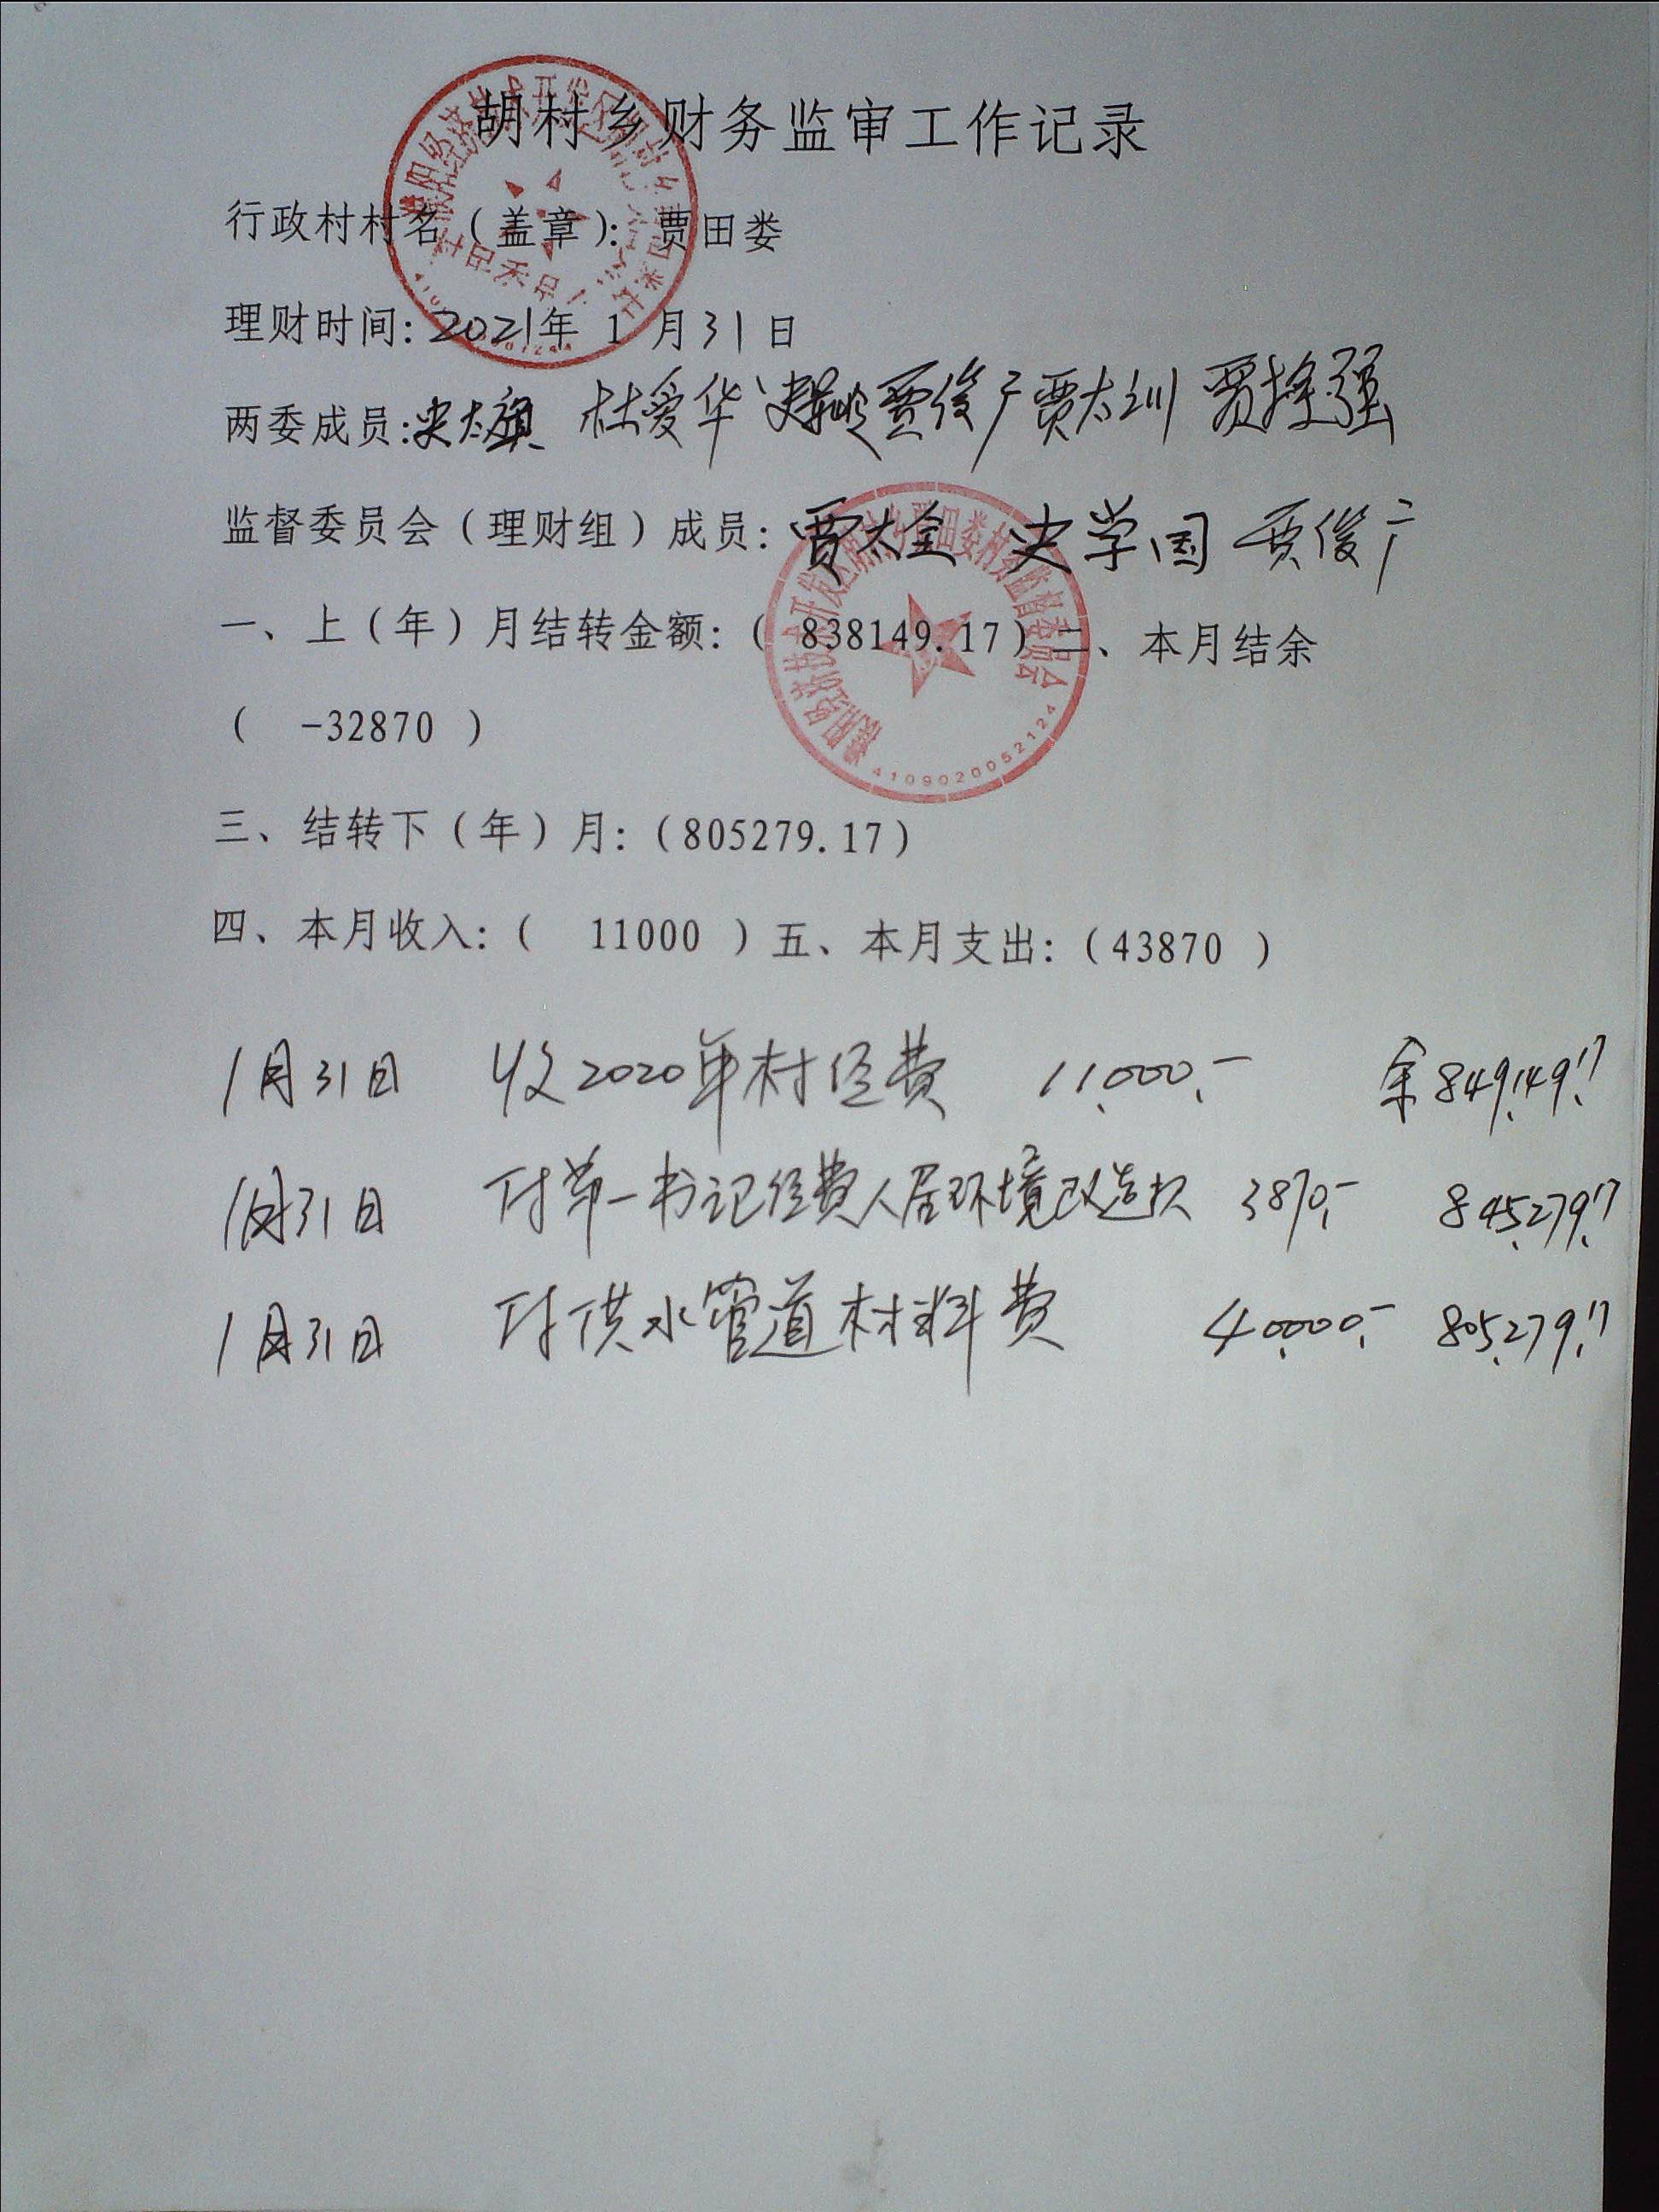 胡村乡财务监审工作记录
行政村村名（盖章）：贾田娄
理财时间：2021年 1 月31日
两委成员：史太旗 杜爱华 贾俊广 贾太训 贾拴强
监督委员会（理财组）成员：贾太金 史学国 贾俊广
一、上（年）月结转金额：（ 838149.17）二、本月结余
（ -32870 ）
三、结转下（年）月：（805279.17）
四、本月收入：（ 11000 ）五、本月支出：（43870 ）
1月31日 收2020年村经费 11,000.- 余849,149.17
1月31日 付第一书记经费人居环境改造款 3870.- 845,279.17
1月31日 付供水管道材料费 40,000.- 805,279.17
4109020052124